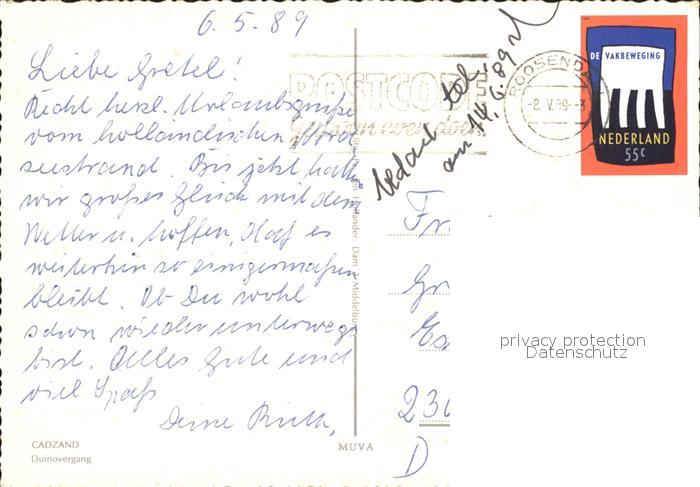 6.5.89
Liebe Gretel!
Recht herzl. Urlaubsgrüße
vom holländischen Nord
seestrand. Bis jetzt hatten
wir großes Glück mit dem
Wetter u. hoffen, daß es
weiterhin so einigermaßen
bleibt. Ob Du wohl
schon wieder unterwegs
bist. Alles Gute und
viel Spaß
Deine Ruth,
CADZAND
Duinovergang
MUVA
bedankt tel.
am 14.6.89
POSTCODE
ROOSENDA
-8.V.89-3
DE VAKBEWEGING
NEDERLAND
55c
Fr
Gr
230
D
privacy protection
Datenschutz